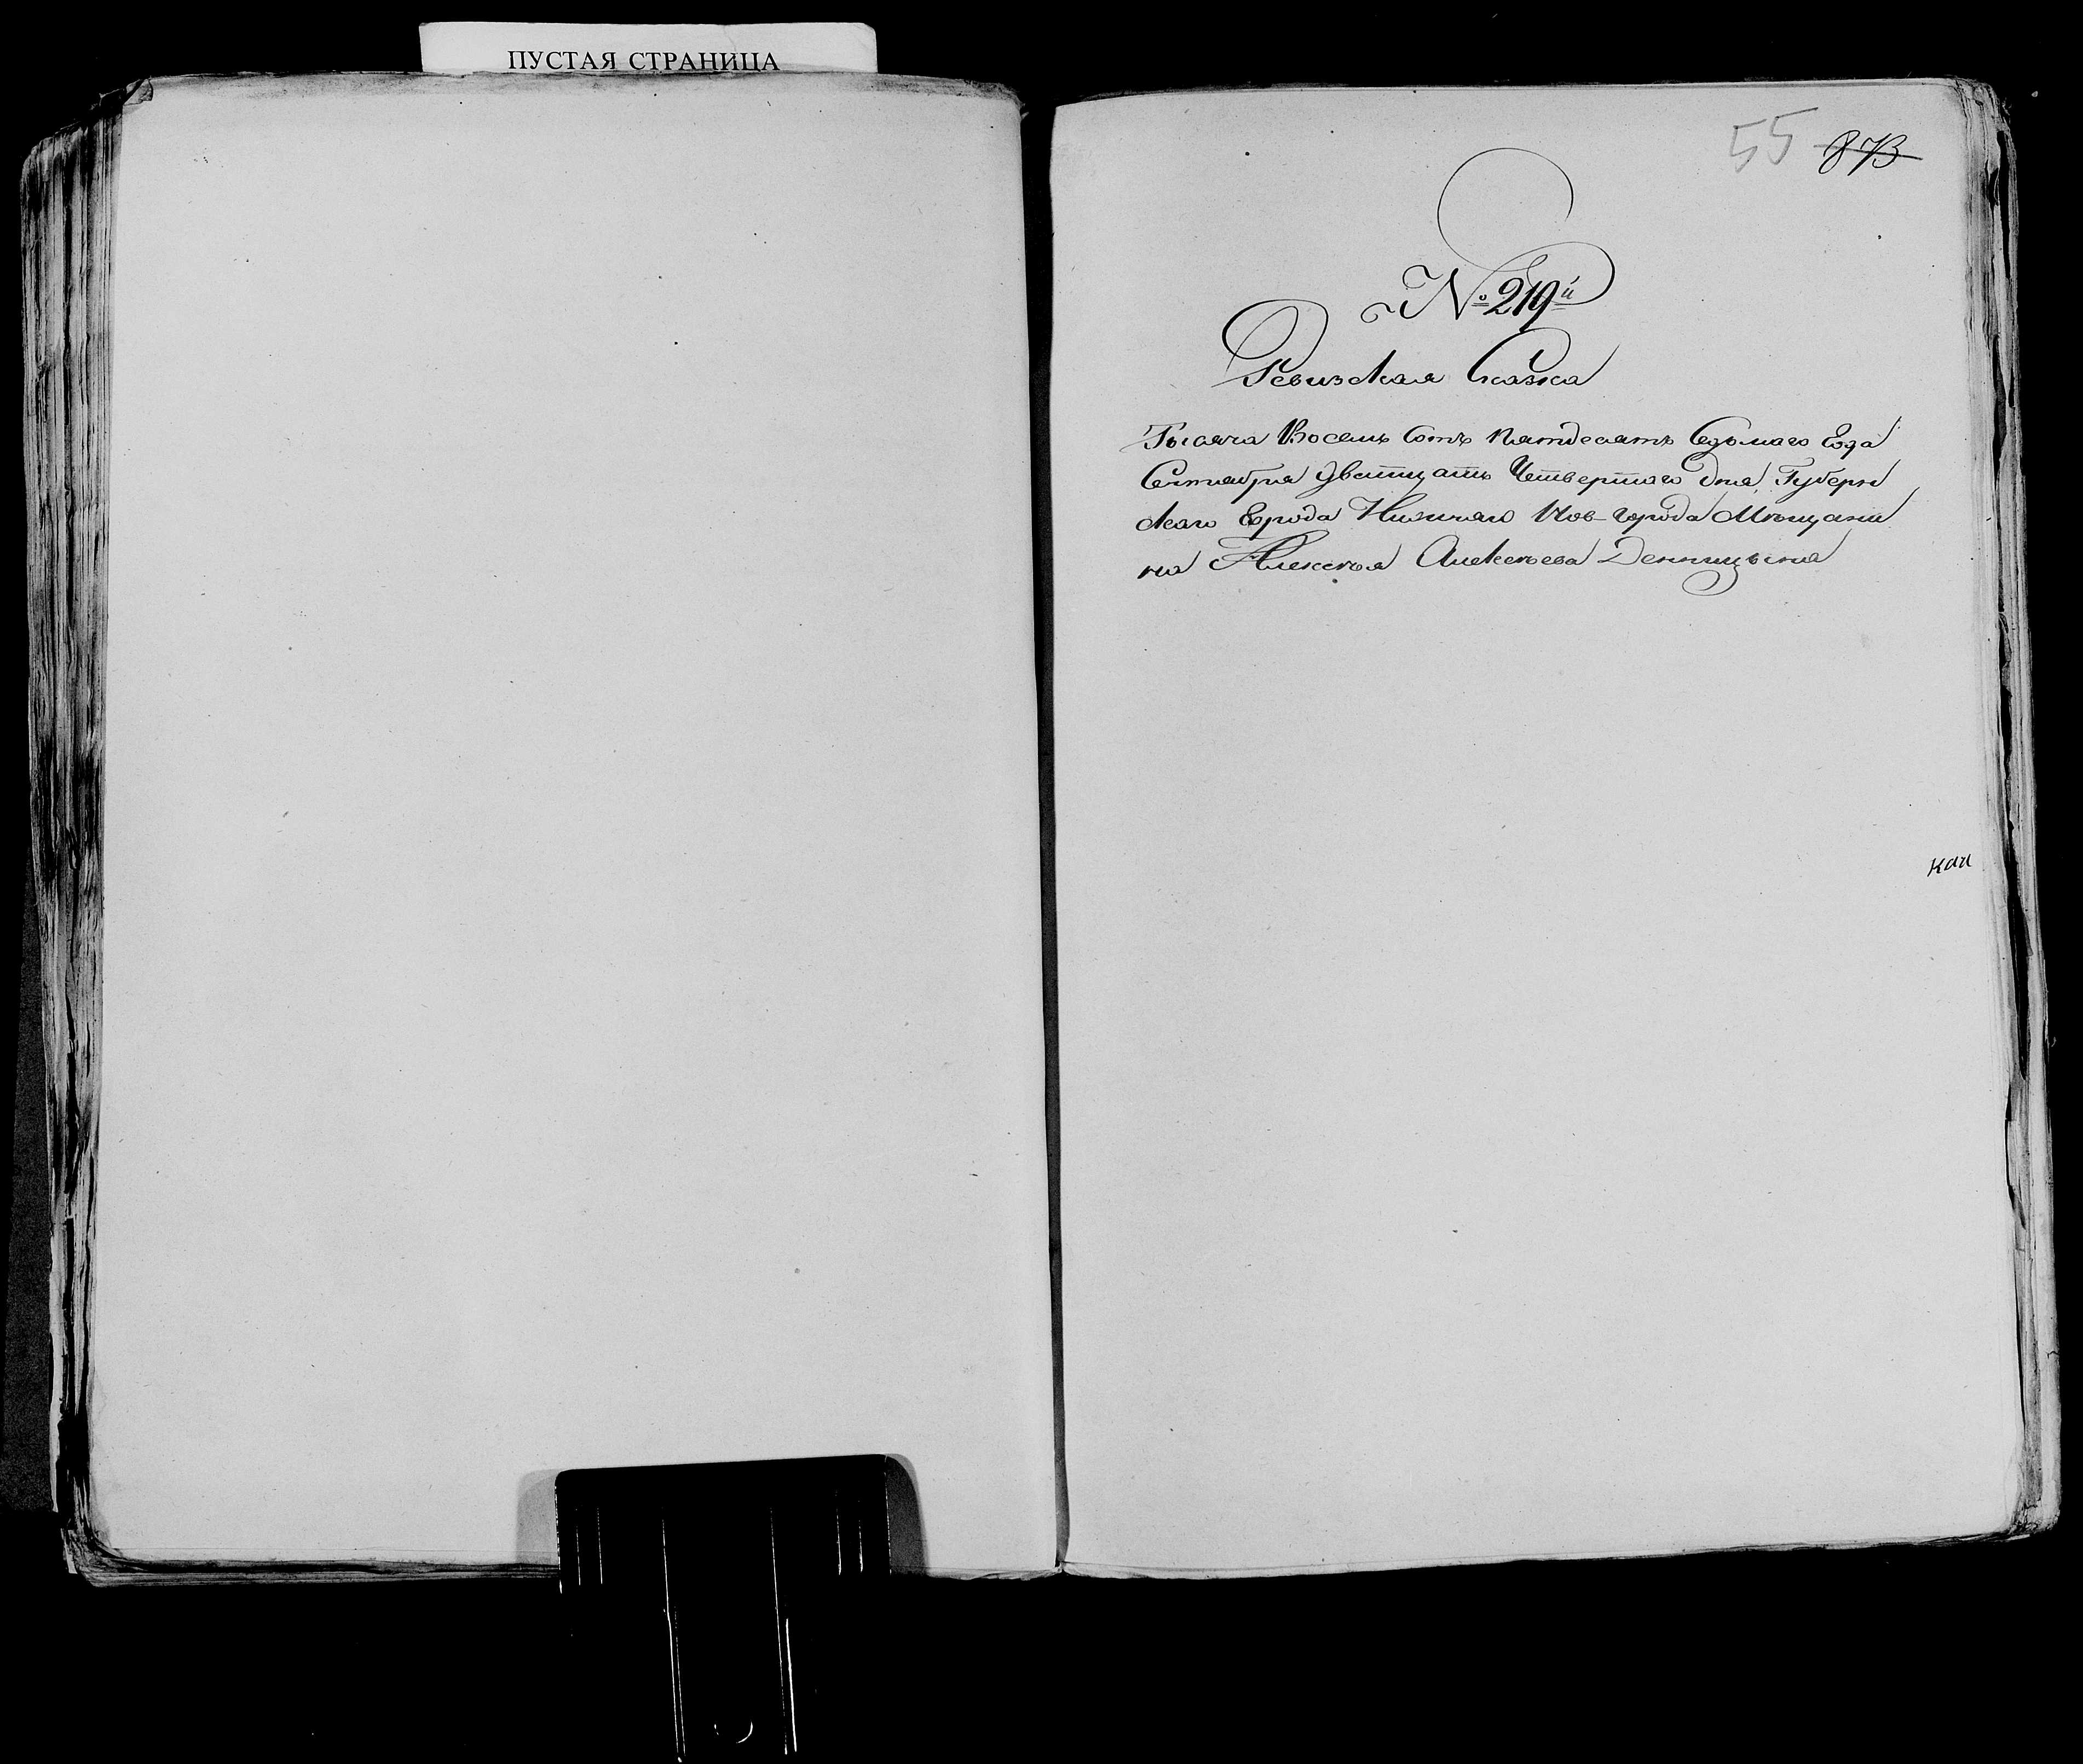 ПУСТАЯ СТРАНИЦА
55 873
№ 219й
Ревизская Сказка
Тысяча Восемь Сотъ Пятдесятъ Седьмаго Года
Сентября Дватцать Четвертаго Дня, Губерн
скаго Города Нижняго Нов-города Мѣщани
на Алексѣя Алексѣева Денницына